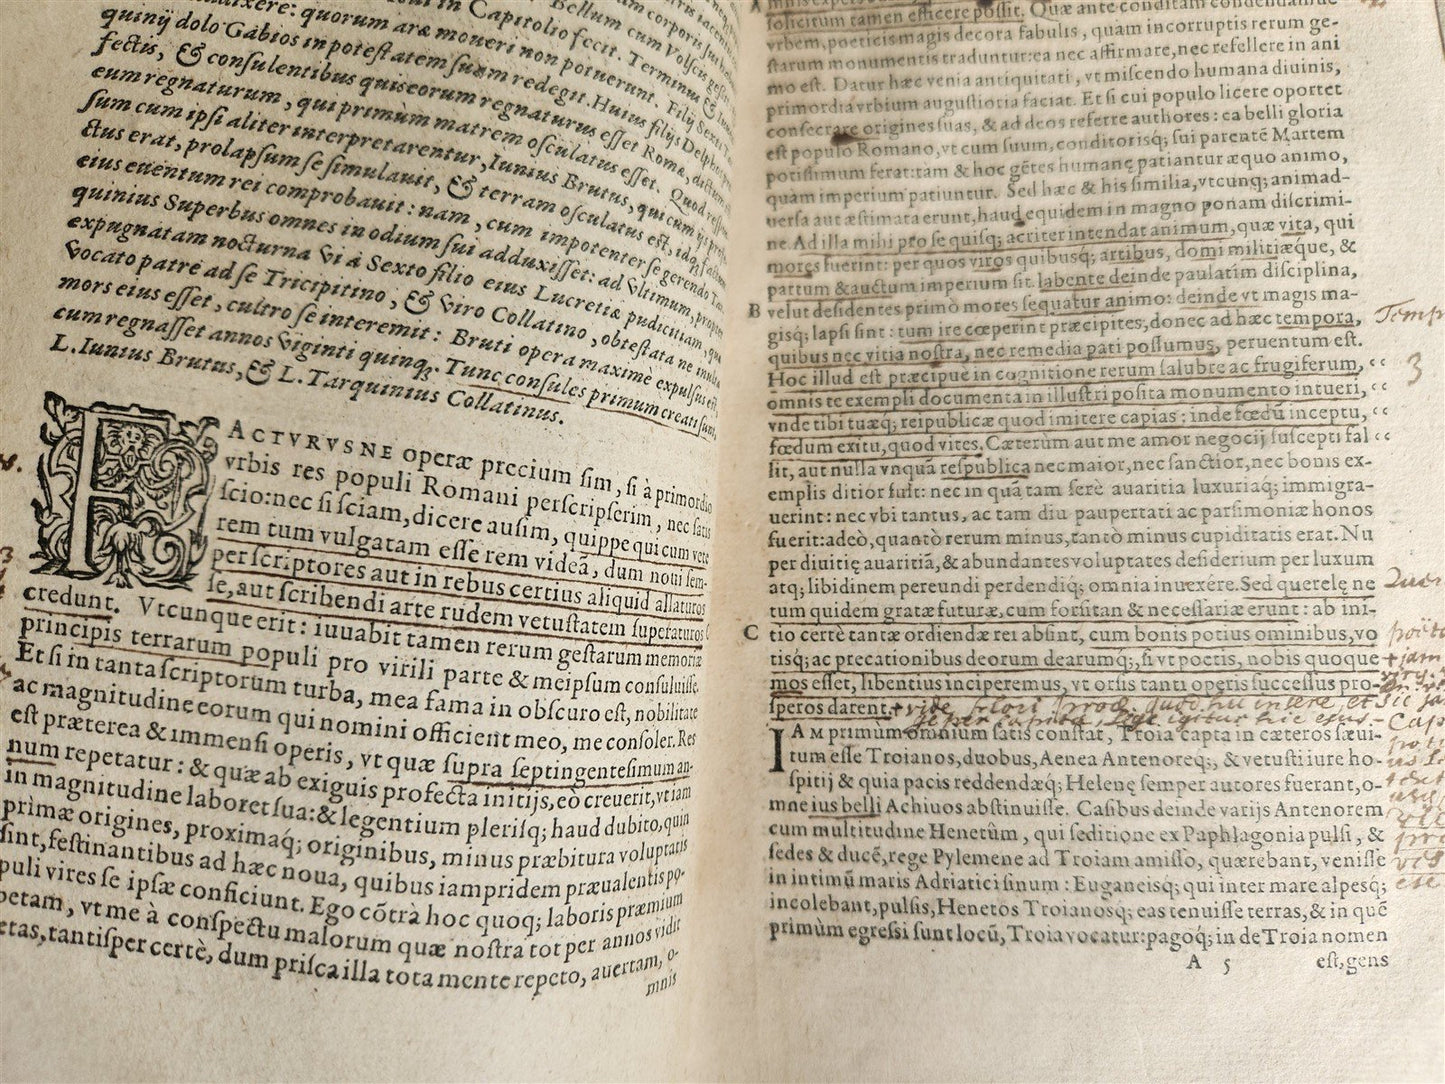 in Capitolio fecit. Bellum cum Volscis
duxere: quorum aræ moueri non potuerunt. Terminus &
quinij dolo Gabios in potestatem suam redegit. Huius filij Delphos
fectis, & consulentibus quis eorum regnaturus esset Romæ, dictum
eum regnaturum, qui primùm matrem osculatus esset. Quod
sum cum ipsi aliter interpretarentur, Iunius Brutus, qui cum ijs
ctus erat, prolapsum se simulauit, & terram osculatus est, idq́,
eius euentum rei comprobauit: nam, cum impotenter se gerendo Tar
quinius Superbus omnes in odium sui adduxisset: ad vltimum, propter
expugnatam nocturna vi à Sexto filio eius Lucretiæ pudicitiam, quæ
vocato patre ad se Tricipitino, & viro Collatino, obtestata ne inulta
mors eius esset, cultro se interemit: Bruti opera maximè expulsus est,
cum regnasset annos viginti quinq́. Tunc consules primum creati sunt,
L. Iunius Brutus, & L. Tarquinius Collatinus.
FACTVRVSNE operæ precium sim, si à primordio
vrbis res populi Romani perscripserim, nec satis
scio: nec si sciam, dicere ausim, quippe qui cum vete
rem tum vulgatam esse rem videã, dum noui sem-
per scriptores aut in rebus certius aliquid allaturos
se, aut scribendi arte rudem vetustatem superaturos
credunt. Vtcunque erit: iuuabit tamen rerum gestarum memoriæ
principis terrarum populi pro virili parte & meipsum consuluisse.
Et si in tanta scriptorum turba, mea fama in obscuro est, nobilitate
ac magnitudine eorum qui nomini officient meo, me consoler. Res
est præterea & immensi operis, vt quæ supra septingentesimum an-
num repetatur: & quæ ab exiguis profecta initijs, eò creuerit, vt iam
in magnitudine laboret sua: & legentium plerisq; haud dubito, quin
primæ origines, proximaq́; originibus, minus præbitura voluptatis
sint, festinantibus ad hæc noua, quibus iampridem præualentis po-
puli vires se ipsæ conficiunt. Ego cõtrà hoc quoq; laboris præmium
petam, vt me à conspectu malorum quæ nostra tot per annos vidit
ætas, tantisper certè, dum prisca illa tota mente repeto, auertam, o-
mnis
A
sollicitum tamen efficere possit. Quæ ante conditam condendamue
vrbem, poeticis magis decora fabulis, quàm incorruptis rerum ge-
starum monumentis traduntur: ea nec affirmare, nec refellere in ani
mo est. Datur hæc venia antiquitati, vt miscendo humana diuinis,
primordia vrbium augustiora faciat. Et si cui populo licere oportet
consecrare origines suas, & ad deos referre authores: ea belli gloria
est populo Romano, vt cum suum, conditorisq́; sui parentẽ Martem
potissimum ferat: tam & hoc gẽtes humanę patiantur æquo animo,
quàm imperium patiuntur. Sed hæc & his similia, vtcunq; animad-
versa aut æstimata erunt, haud equidem in magno ponam discrimi-
ne. Ad illa mihi pro se quisq; acriter intendat animum, quæ vita, qui
mores fuerint: per quos viros quibusq́; artibus, domi militiæque, &
partum & auctum imperium sit. labente deinde paulatim disciplina,
B velut desidentes primò mores sequatur animo: deinde vt magis ma-
gisq; lapsi sint: tum ire cœperint præcipites, donec ad hæc tempora,
quibus nec vitia nostra, nec remedia pati possumus, peruentum est.
Hoc illud est præcipue in cognitione rerum salubre ac frugiferum, “
3
omnis te exempli documenta in illustri posita monumento intueri, “
vnde tibi tuæq; reipublicæ quod imitere capias: inde fœdũ inceptu, “
fœdum exitu, quod vites. Cæterùm aut me amor negocij suscepti fal “
lit, aut nulla vnquã respublica nec maior, nec sanctior, nec bonis ex-
emplis ditior fuit: nec in quã tam serè auaritia luxuriaq; immigra-
uerint: nec vbi tantus, ac tam diu paupertati ac parsimoniæ honos
fuerit: adeò, quantò rerum minus, tantò minus cupiditatis erat. Nu
per diuitię auaritiã, & abundantes voluptates desiderium per luxum
atq; libidinem pereundi perdendiq; omnia inuexére. Sed querelę ne
tum quidem gratæ futuræ, cum forsitan & necessariæ erunt: ab ini-
C tio certè tantæ ordiendæ rei absint, cum bonis potius ominibus, vo
tisq; ac precationibus deorum dearumq;, si vt poetis, nobis quoque
mos esset, libentius inciperemus, vt orsis tanti operis successus pro-
speros darent.
IAM primùm omnium satis constat, Troia capta in cæteros sæui-
tum esse Troianos, duobus, Aenea Antenoreq;, & vetusti iure ho-
spitij & quia pacis reddendæq; Helenę semper autores fuerant, o-
mne ius belli Achiuos abstinuisse. Casibus deinde varijs Antenorem
cum multitudine Henetûm, qui seditione ex Paphlagonia pulsi, &
sedes & ducẽ, rege Pylemene ad Troiam amisso, quærebant, venisse
in intimũ maris Adriatici sinum: Euganeisq; qui inter mare alpesq;
incolebant, pulsis, Henetos Troianosq; eas tenuisse terras, & in quẽ
primùm egressi sunt locũ, Troia vocatur: pagoq́; in de Troia nomen
A 5 est, gens